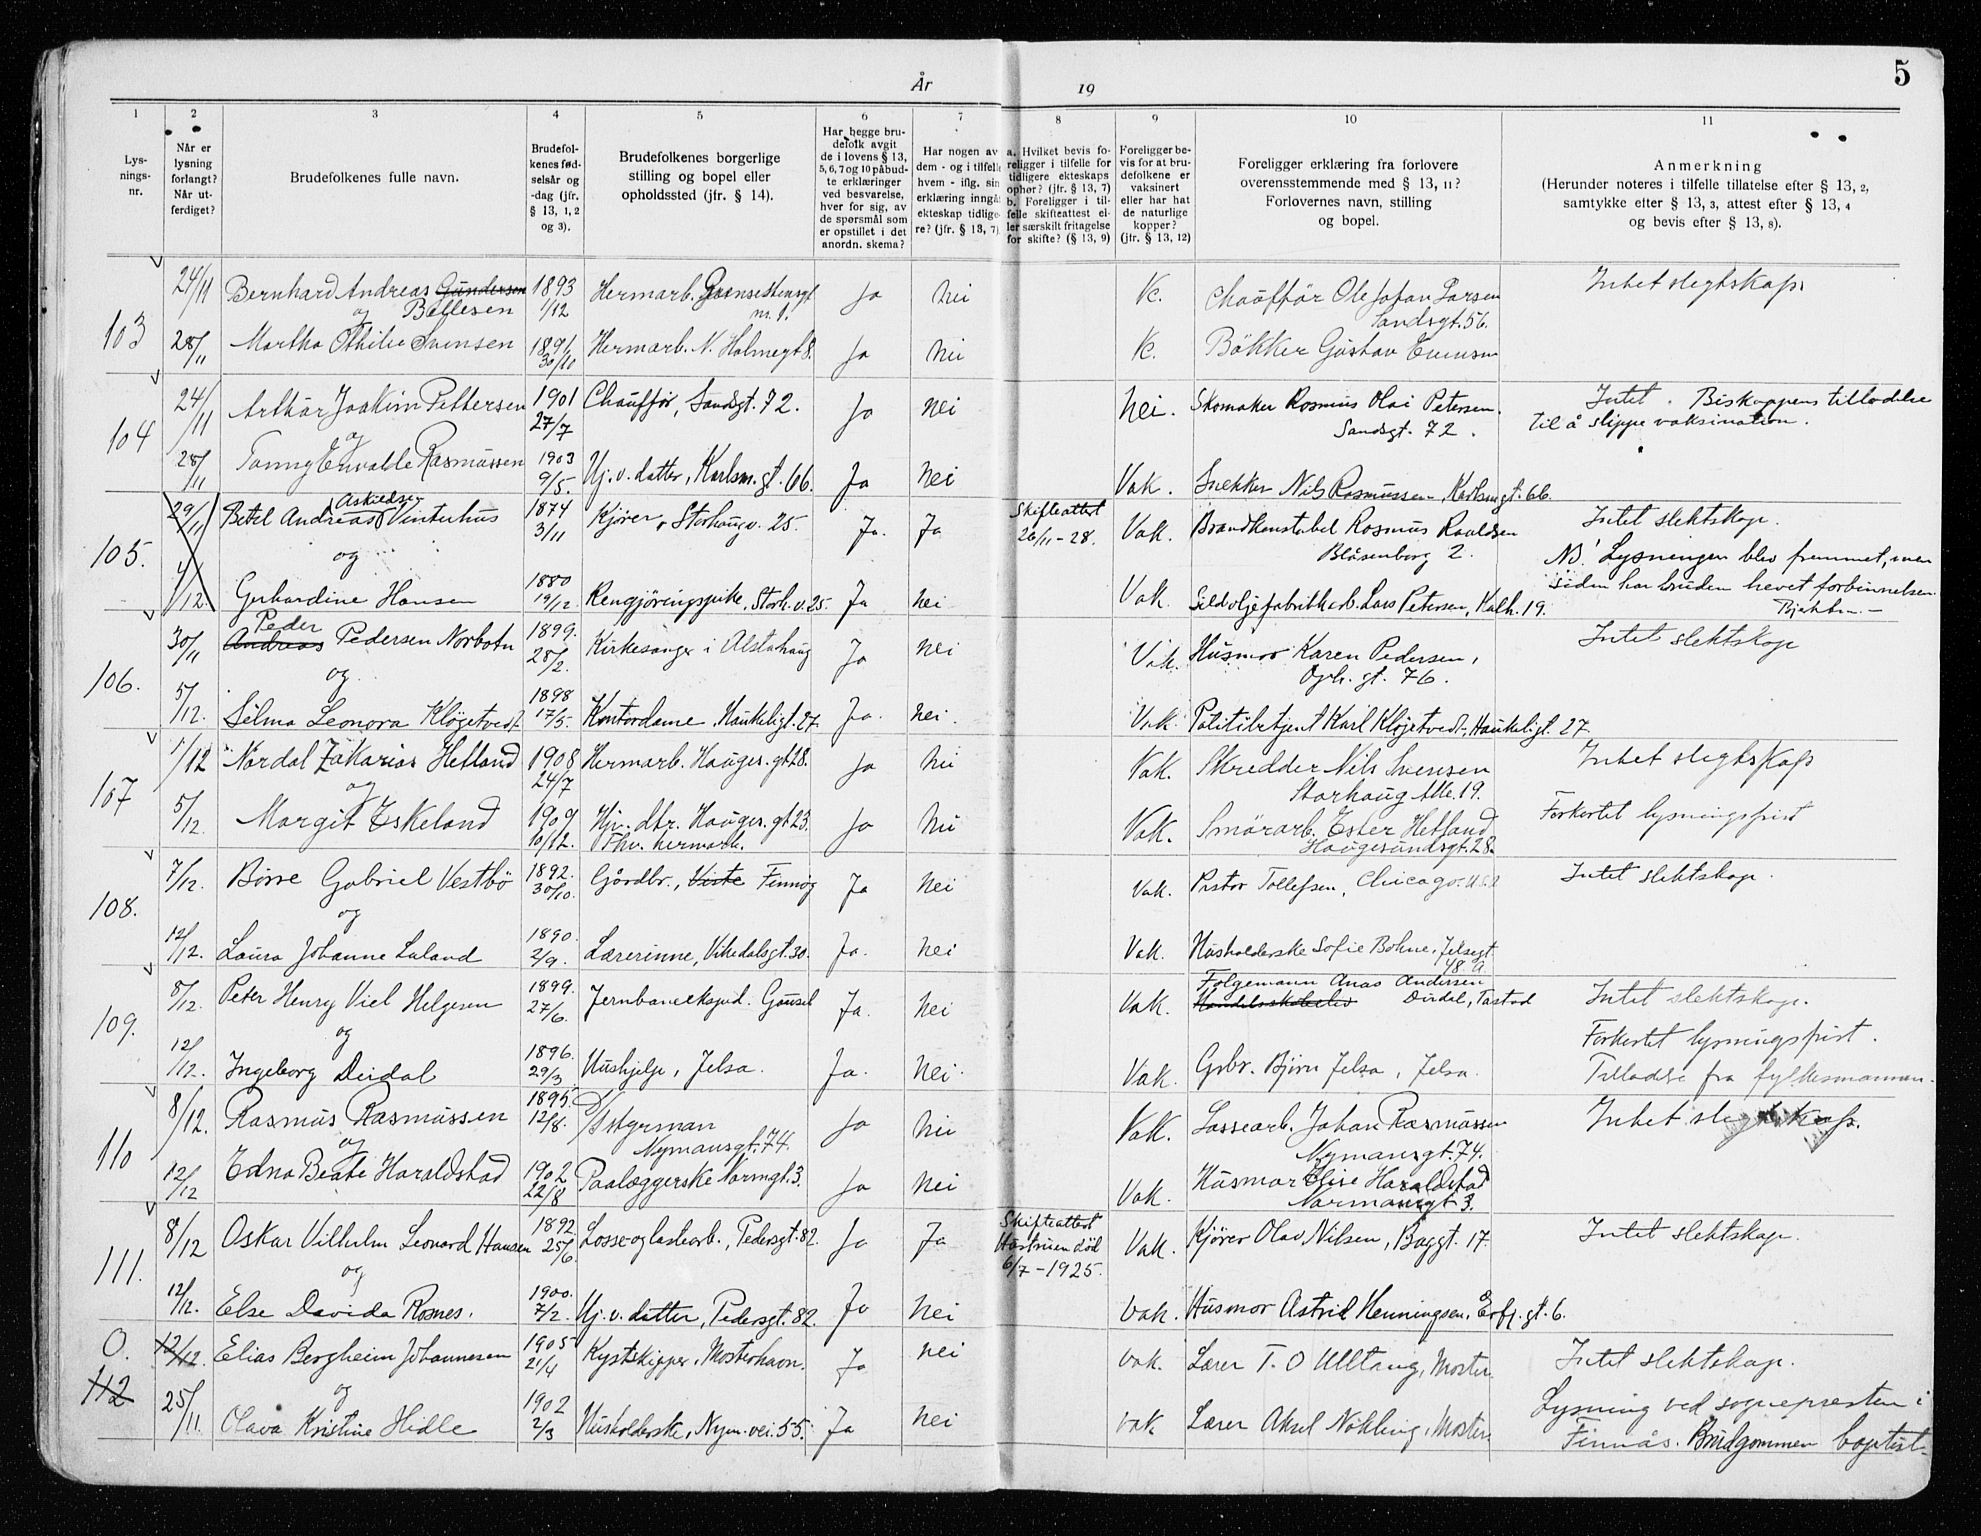 År 19
5
1 2 3 4 5 6 7 8 9 10 11
Lys-
nings-
nr.
Når er
lysning
forlangt?
Når ut-
ferdiget?
Brudefolkenes fulle navn.
Brudefol-
kenes fød-
selsår og
-dag (jfr.
§ 13, 1, 2
og 3).
Brudefolkenes borgerlige
stilling og bopel eller
opholdssted (jfr. § 14).
Har begge bru-
defolk avgit
de i lovens § 13,
5, 6, 7 og 10 påbud-
te erklæringer
ved besvarelse,
hver for sig, av
de spørsmål som
er opstillet i det
anordn. skema?
Har nogen av
dem - og i tilfelle
hvem - iflg. sin
erklæring inngåt
ekteskap tidlige-
re? (jfr. § 13, 7)
a. Hvilket bevis fo-
religger i tilfelle for
tidligere ekteskaps
ophør? (jfr. § 13, 7)
b. Foreligger i til-
felle skifteattest el-
ler særskilt fritagelse
for skifte? (§ 13, 9)
Foreligger be-
vis for at bru-
defolkene er
vaksinert
eller har hat
de naturlige
kopper?
(jfr. § 13, 12)
Foreligger erklæring fra forlovere
overensstemmende med § 13, 11?
Forlovernes navn, stilling
og bopel.
Anmerkning
(Herunder noteres i tilfelle tillatelse efter § 13, 2,
samtykke efter § 13, 3, attest efter § 13, 4
og bevis efter § 13, 8).
103 24/11 Bernhard Andreas Gundersen 1893 Hermarb. Grensestensgt Ja Nei Vc. Chauffør Ole Johan Larsen Intet slegtskap.
og Bellesen 1/12 nr. 1. Sandsgt. 56.
28/11 Martha Othilie Svensen 1891 30/10 Hermarb. N. Holmegt 8. Ja Nei Vc. Bökker Gustav Evensen
104 24/11 Arthur Joakim Pettersen 1901 27/7 Chauffør, Sandsgt. 72. Ja Nei Nei. Skomaker Rasmus Olai Petersen. Intet. Biskoppens tilladelse
og Sandsgt. 72. til å slippe vaksination.
28/11 Rasmussen 1903 9/5. Hj. v. datter, Karlsm. gt. 66. Ja Nei Vak. Snekker Nils Rasmussen, Karlsmgt. 66.
105. 29/11 Betel Andreas Askildsen Vinterhus 1874 3/11 Kjører, Storhaugv. 25. Ja. Ja Skifteattest 26/11-28. Vak. Brandkonstabel Rasmus Roaldsen Intet slektskap.
og Blåsenborg 2. NB! Lysningen blev fremmet, men
4/12. Gerhardine Hansen 1880 19/12. Rengjøringspike, Storh. v. 25. Ja Nei Vak. Sildoljefabrikkarb. Lars Petersen, Kalh. 19. siden har bruden hevet forbinnelsen.
106. 30/11 Andreas Peder Pedersen Norbotn 1899. 28/2. Kirkesanger i Alstahaug Ja Nei Vak. Husmor Karen Pedersen, Intet slektskap
og gt. 76.
5/12. Selma Leonora Kløgetvedt 1898 17/5. Kontordame, Haukeligt. 27. Ja. Nei. Vak. Politibetjent Karl Kløgetvedt, Haukeligt. 27
107 1/12 Nordal Zakarias Hetland 1908 24/7 Hermarb. Hauges. gt 28. Ja Nei Vak. Skredder Nils Svensen Intet slegtskap
og Storhaug Alle. 19.
5/12. Margit Eskeland 1909 10/12. Hjv. dtr. Hauges. gt 23. Ja Nei Vak. Smörarb. Ester Hetland Forkortet lysningsfrist
Thv. hermark. Haugesundsgt. 28.
108. 7/12. Børre Gabriel Vestbö 1892. 30/10. Gårdbr., Viste Finnöy Ja Nei Vak. Pastor Tollefsen, Chicago. U.S.A Intet slektskap.
og
12/12. Laura Johanne Laland 1890. 2/9. Lærerinne, Vikedalsgt. 30. Ja. Nei Vak. Husholderske Sofie Bohne, Jelsegt 48 A
109. 8/12. Peter Henry Viel Helgesen 1899. 27/6. Jernbaneeksped. Gausel Ja. Nei Vak. Folgemann Anas Andersen Intet slektskap.
og Handelsskoleelev Dirdal, Tastad Forkortet lysningsfrist.
12/12. Ingeborg Deidal 1896. 29/3 Hushjelp, Jelsa. Ja. Nei. Vak. Grbr. Bjørn Jelsa, Jelsa. Tilladelse fra fylkesmannen.
110 8/12. Rasmus Rasmussen 1895. 12/8. Ja Nei Vak. Lossearb. Johan Rasmussen Intet slegtskap.
og Nymansgt. 74. Nymansgt. 74.
12/12 Edna Beate Haraldstad 1902 22/8 Paalæggerske Normngt. 3. Ja Nei Vak. Husmor Elise Haraldstad
Normansgt 3.
111. 8/12 Oskar Vilhelm Leonard Hansen 1892 25/6. Losse- og lastearb., Pedersgt. 82. Ja Ja Skifteattest Hustruen død 6/7-1925. Vak. Kjører Olav Nilsen, Baggt. 17. Intet slektskap.
og
12/12. Else Davida Rosnes. 1900. 7/2. Hj. v. datter, Pedersgt. 82. Ja Nei Vak. Husmor Astrid Henningsen, Erfj. gt. 6.
0. 12/12. Elias Bergheim Johannesen 1905 21/4 Kystskipper, Mosterhavn. Ja Nei Vak. Lærer T. O Ulltang, Moster. Intet slektskap.
112 og Lysning ved sognepresten i
25/11. Olava Kristine Hidle 1902 2/3 Husholderske, Nym. vei. 55. Ja Nei Vak Lærer Aksel Nökling, Moster. Finnås. Brudgommen baptist.